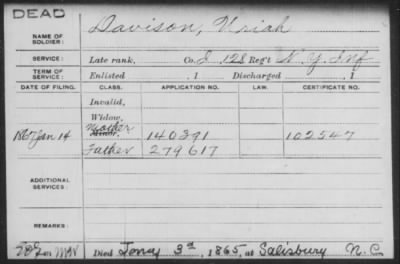 DEAD
NAME OF SOLDIER: Davison, Uriah
SERVICE: Late rank, Co. I 128 Reg't N. Y. Inf
TERM OF SERVICE: Enlisted , 1 Discharged , 1
DATE OF FILING. CLASS. APPLICATION NO. LAW. CERTIFICATE NO.
Invalid,
Widow,
1867 Jan 14 Mother 140391 102547
Minor,
Father 279617
ADDITIONAL SERVICES:
REMARKS:
Died Jany 3d, 1865, at Salisbury N. C.